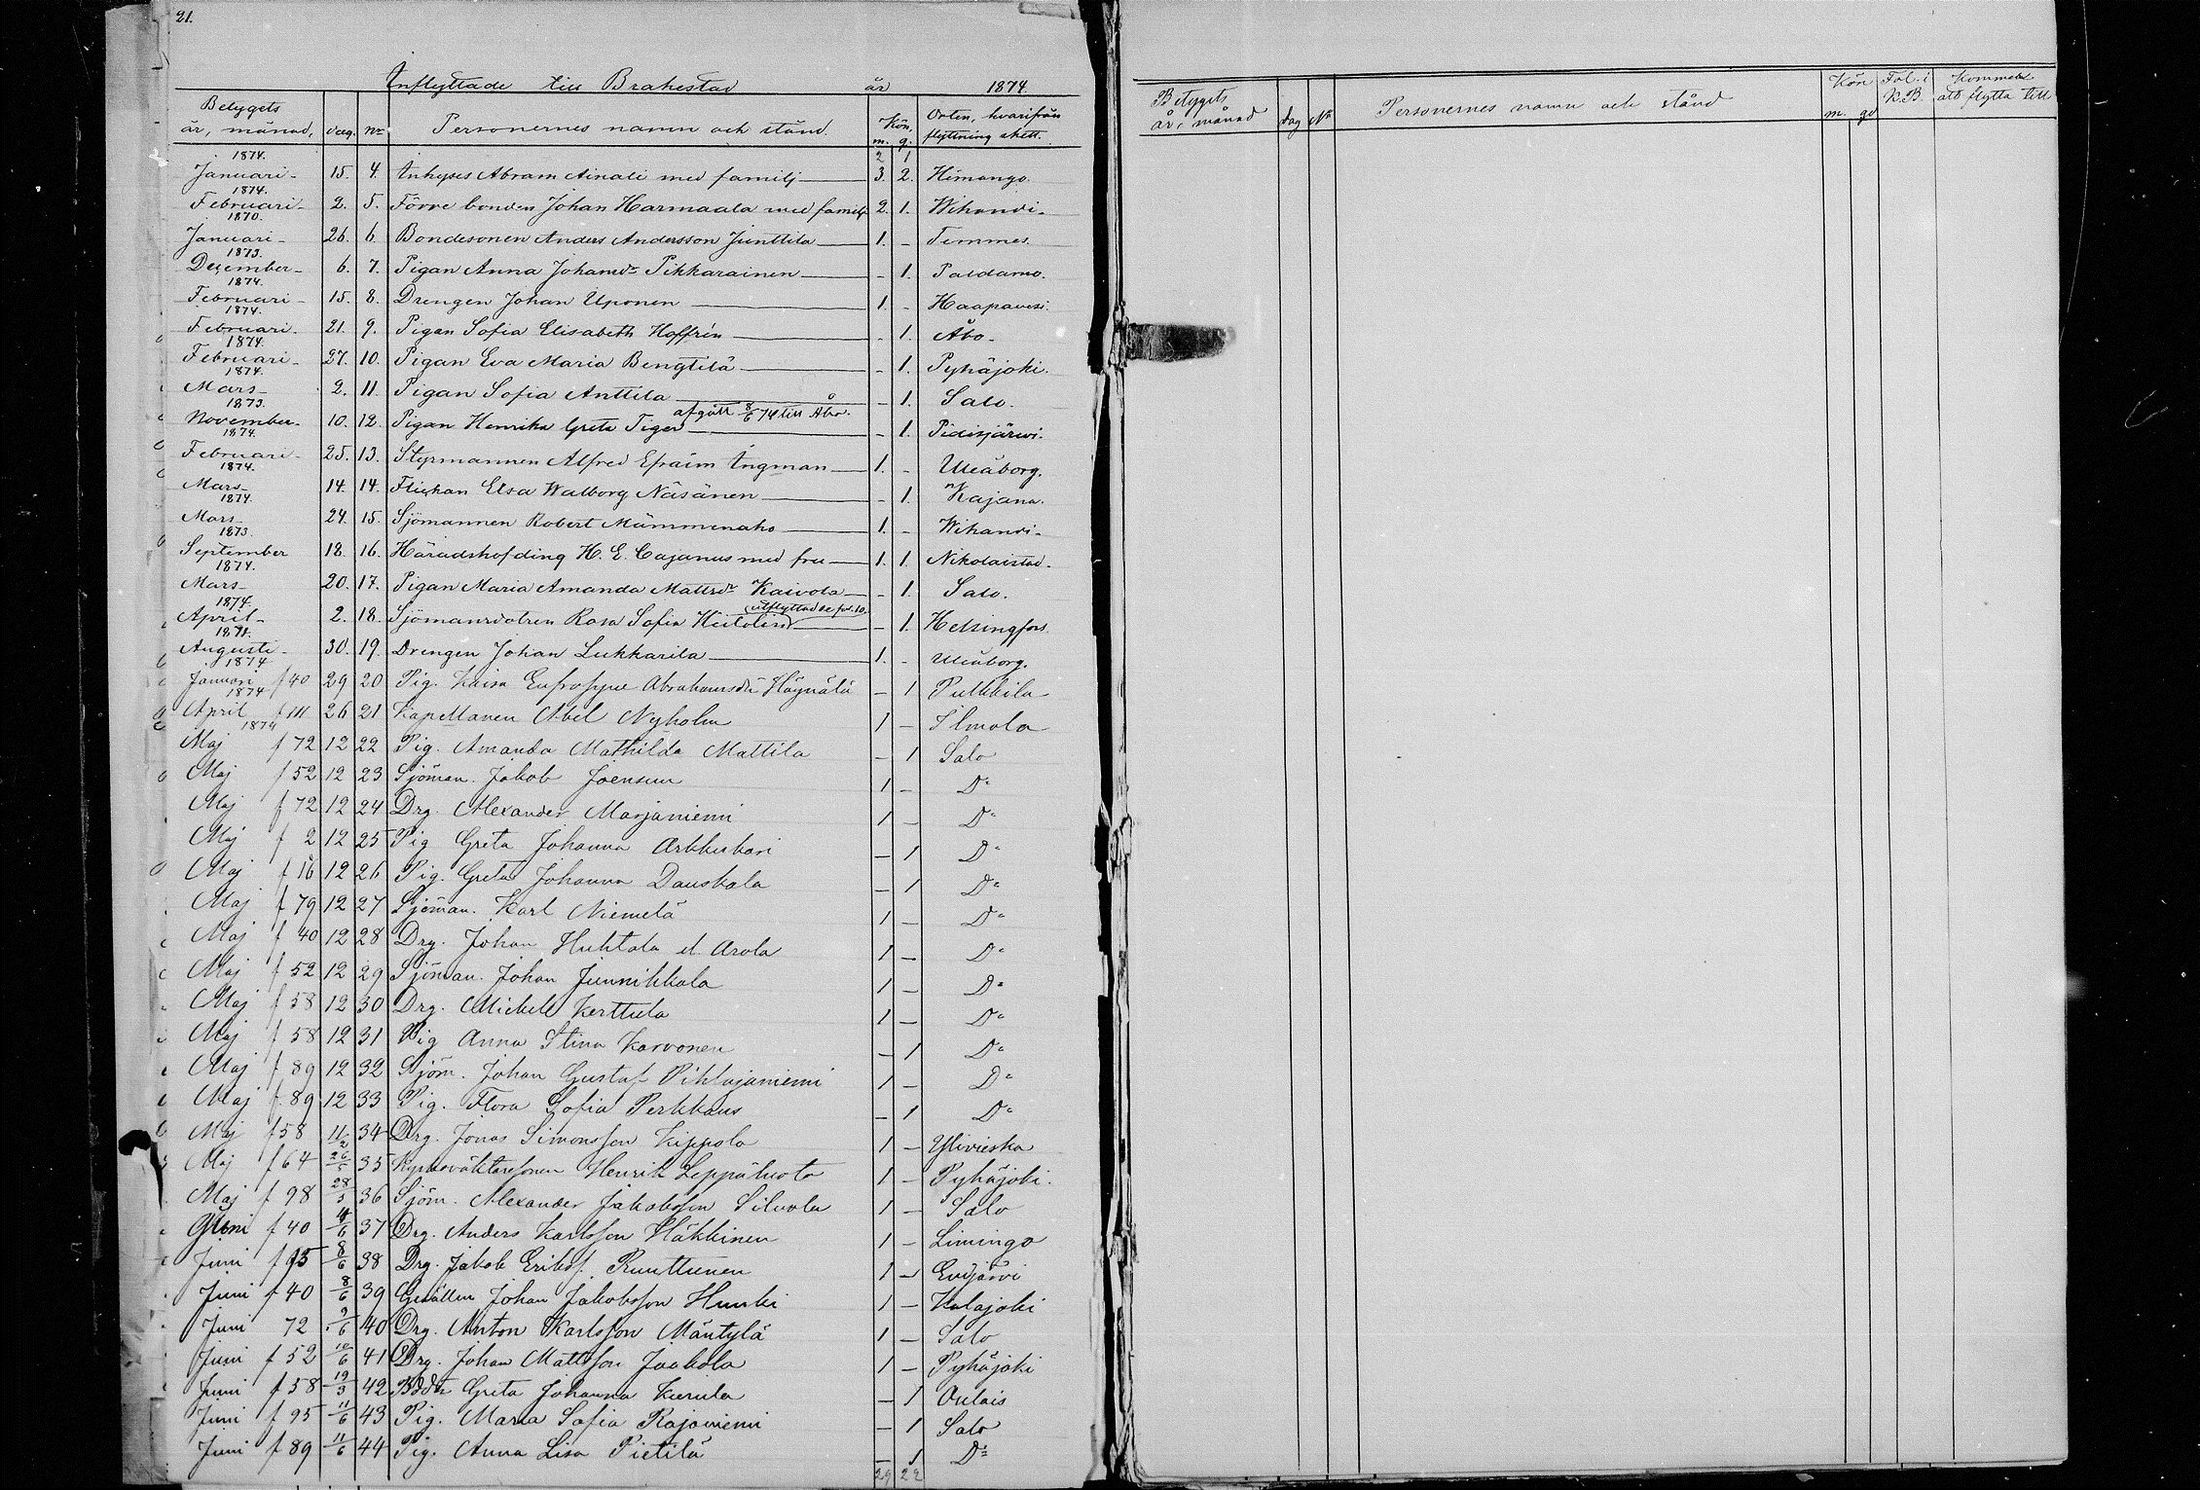 21.
Inflyttade till Brahestad år 1874.
Betygets år, månad, dag. No Personernes namn och stånd. Kön, m. q. Orten, hvarifrån flyttning skett.
2 1
1874. Januari- 15. 4. Inhyses Abram Ainali med familj 3. 2. Himango.
1874. Februari- 2. 5. Förre bonden Johan Harmaala med familj 2. 1. Wihandi-
1870. Januari- 26. 6. Bondesonen Anders Andersson Junttila 1. - Temmes.
1873. December- 6. 7. Pigan Anna Johansdr Pikkarainen - 1. Paldamo.
1874. Februari- 15. 8. Drengen Johan Uponen 1. - Haapavesi.
1874. Februari- 21. 9. Pigan Sofia Elisabeth Hoffrén - 1. Åbo-
1874. Februari- 27. 10. Pigan Eva Maria Bengtilä - 1. Pyhäjoki.
1874. Mars- 2. 11. Pigan Sofia Anttila - 1. Salo.
1873. November- 10. 12. Pigan Henrika Greta Tiger afgått 8/6 74 till Åbo. - 1. Pidisjärwi.
1874. Februari- 25. 13. Styrmannen Alfred Efraim Ingman 1. - Uleåborg.
1874. Mars- 14. 14. Flickan Elsa Walborg Näsänen - 1. Kajana.
1874. Mars- 24. 15. Sjömannen Robert Mämmenaho 1. - Wihandi-
1873. September 18. 16. Häradshöfding H. E. Cajanus med fru 1. 1. Nikolaistad-
1874. Mars- 20. 17. Pigan Maria Amanda Mattsdr Kaivola - 1. Salo.
1874. April- 2. 18. Sjömansdotren Rosa Sofia utflyttad se fol. 10. - 1. Helsingfors
1871. Augusti- 30. 19. Drengen Johan Lukkarila 1. - Uleåborg.
1874 Januari f 40 29 20 Pig. Kaisa Eufrosyne Abrahamsdr - 1 Pulkkila
1874 April 26 21 Kapellanen Abel Nyholm 1 - Ilmola
1874 Maj f 72 12 22 Pig. Amanda Mathilda Mattila - 1 Salo
Maj f 52 12 23 Sjöman. Jakob Joensuu 1 - Do
Maj f 72 12 24 Drg. Alexander Marjaniemi 1 - Do
Maj f 2 12 25 Pig Greta Johanna Arkkukari - 1 Do
Maj f 16 12 26 Pig. Greta Johanna Dauskala - 1 Do
Maj f 79 12 27 Sjöman. Karl Niemelä 1 - Do
Maj f 40 12 28 Drg. Johan Huhtala el. Arola 1 - Do
Maj f 52 12 29 Sjöman. Johan Junnikkala 1 - Do
Maj f 58 12 30 Drg. Mickel Kerttula 1 - Do
Maj f 58 12 31 Pig Anna Stina Karvonen - 1 Do
Maj f 89 12 32 Sjöm. Johan Gustaf Pihlajaniemi 1 - Do
Maj f 89 12 33 Pig. Flora Sofia Perkkaus - 1 Do
Maj f 58 11/2 34 Drg. Jonas Simonsson Kippola 1 - Ylivieska
Maj f 64 26/5 35 Kyrkoväktaresonen Henrik Leppäluoto 1 - Pyhäjoki.
Maj f 98 28/5 36 Sjöm. Alexander Jakobsson Siluola 1 - Salo
Juni f 40 4/6 37 Drg. Anders Karlsson Häkkinen 1 - Limingo
Juni f 95 8/6 38 Drg. Jakob Eriksf. Ruuttunen 1 - Evijärvi
Juni f 40 8/6 39 Gesällen Johan Jakobsson Hunki 1 - Kalajoki
Juni 72 9/6 40 Drg. Anton Karlsson Mäntylä 1 - Salo
Juni f 52 10/6 41 Drg. Johan Mattsson Jaakola 1 - Pyhäjoki
Juni f 58 19/3 42 Greta Johanna Kurula - 1 Oulais
Juni f 95 11/6 43 Pig. Maria Sofia Rajaniemi - 1 Salo
Juni f 89 11/6 44 Pig. Anna Lisa Pietilä - 1 Do
29 22
Betygets år, månad dag No Personernes namn och stånd Kön m. qv Fol. i K.B. Kommeln att flytta till